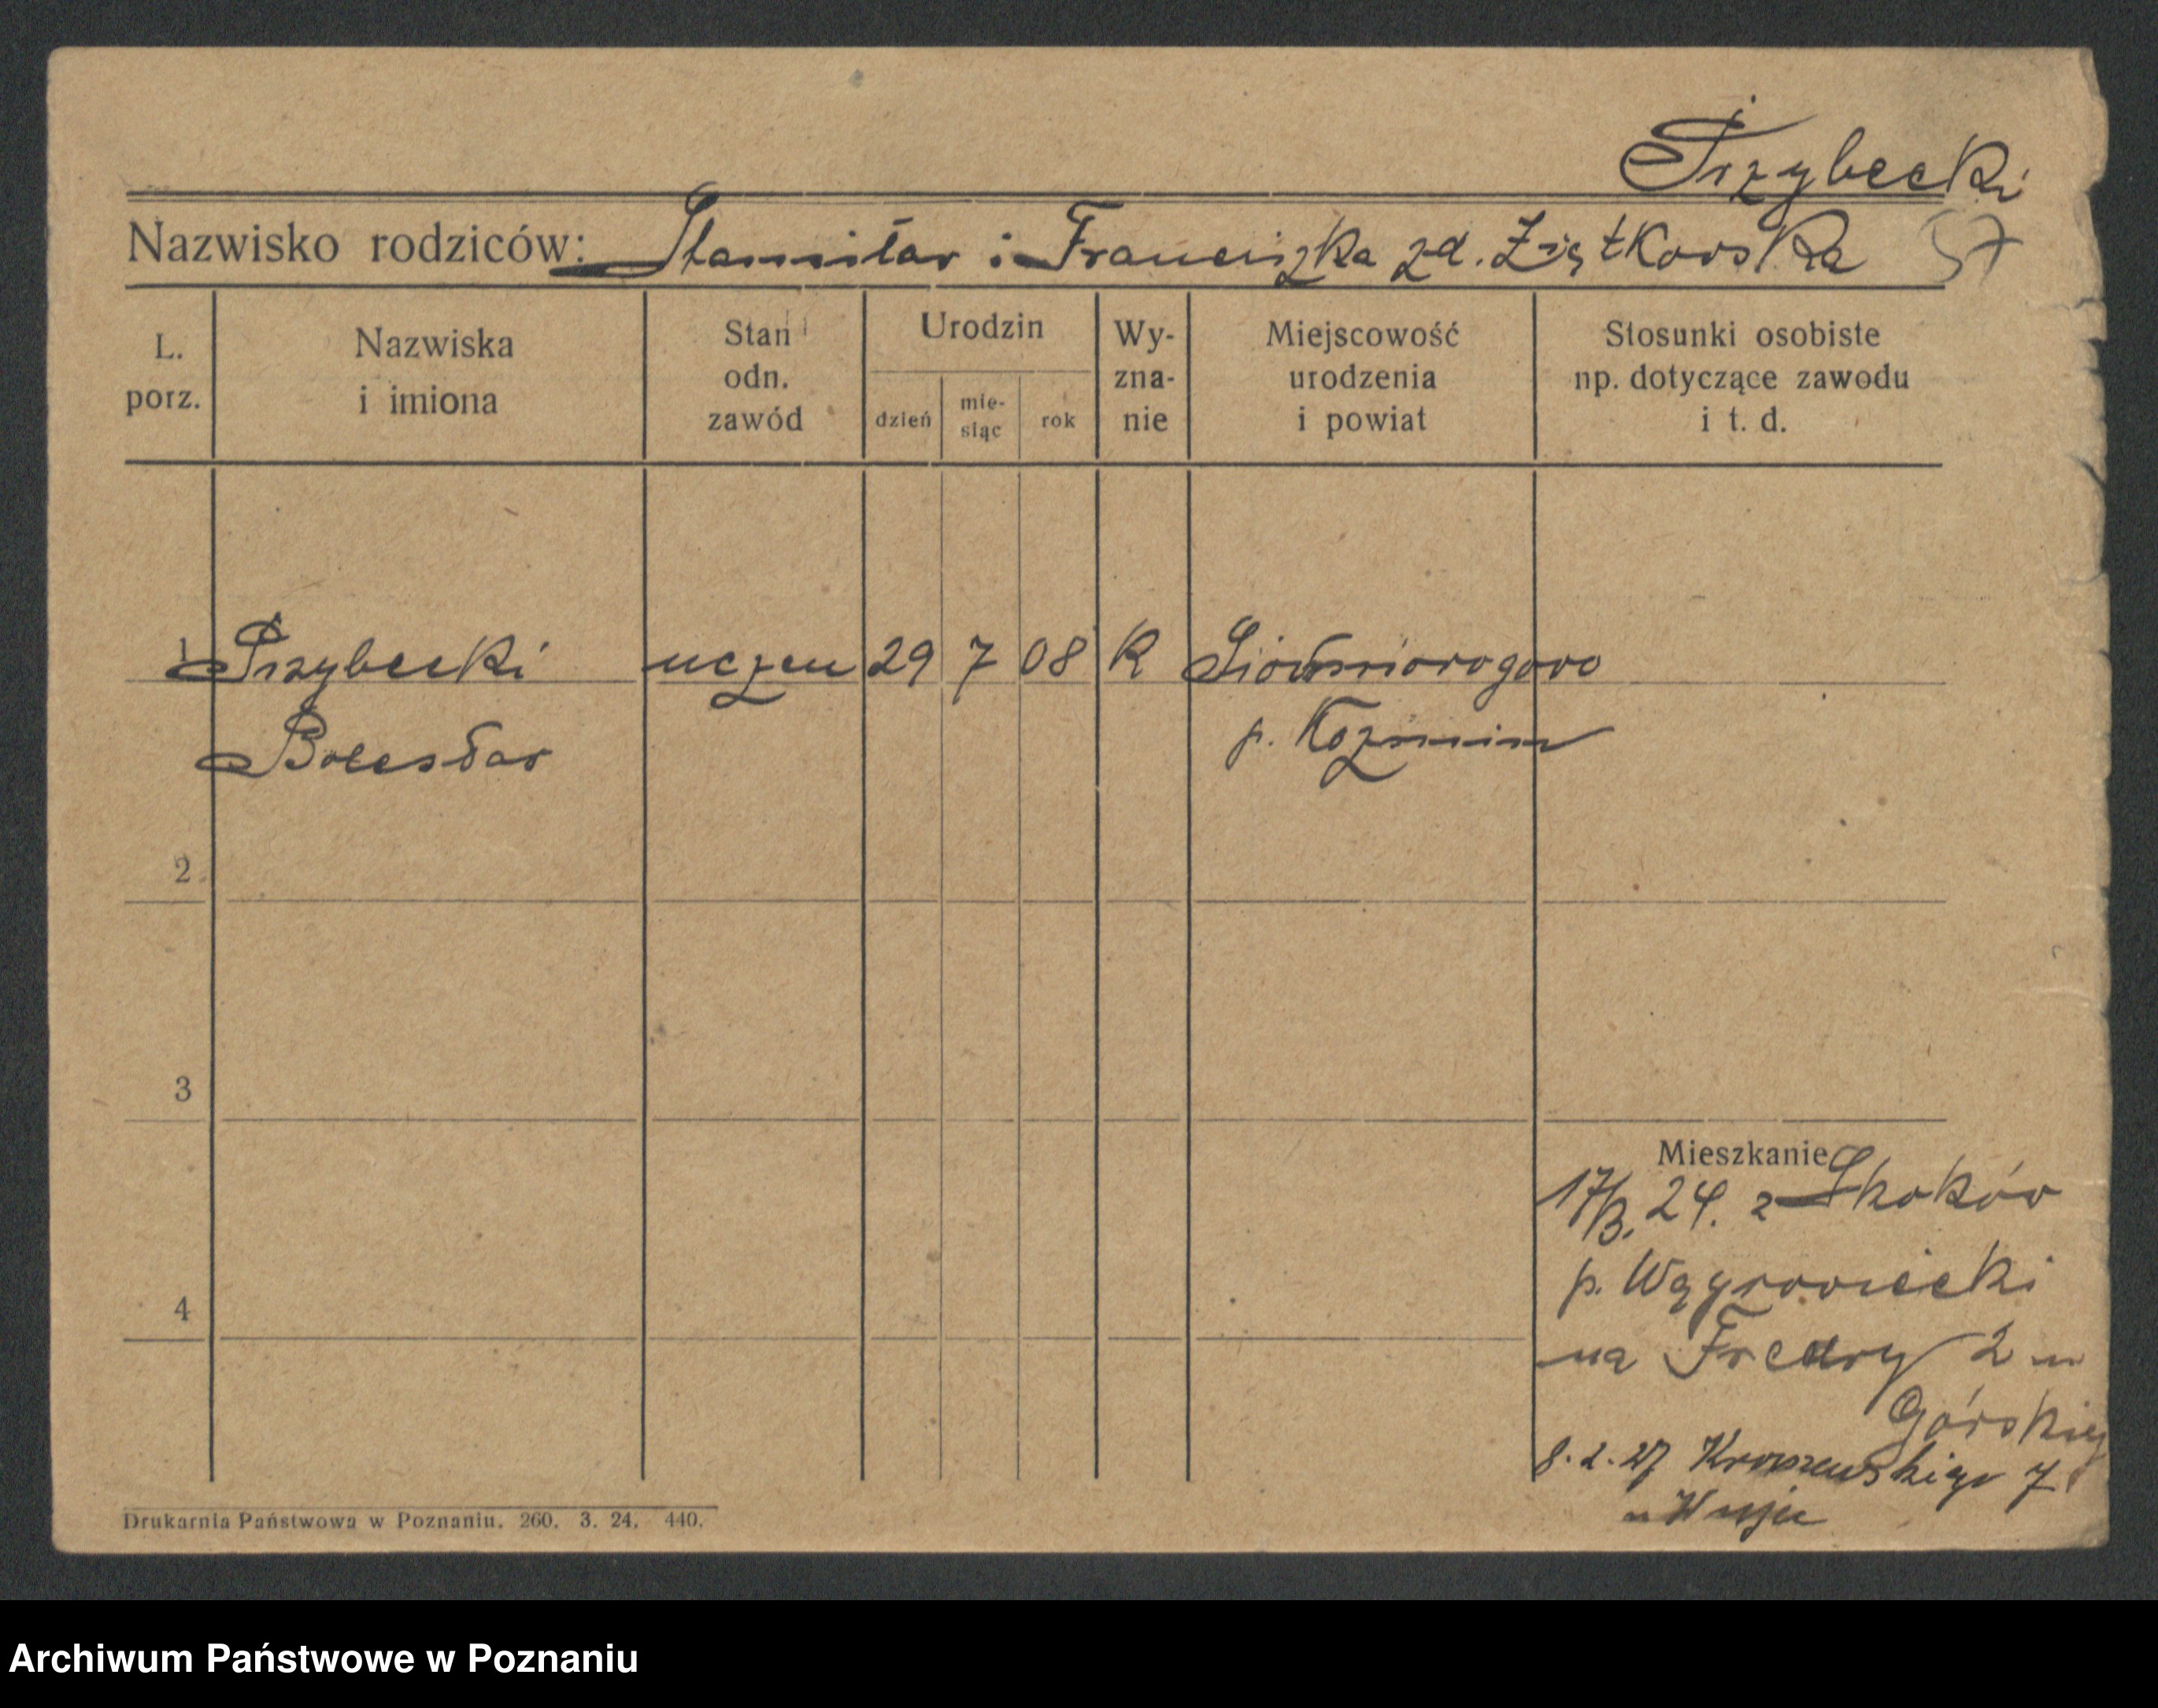 Trzybecki
Nazwisko rodziców: Stanisław i Franciszka zd. Ziętkowska 57
L. porz.
Nazwiska i imiona
Stan odn. zawód
Urodzin
dzień
mie-siąc
rok
Wy-zna-nie
Miejscowość urodzenia i powiat
Stosunki osobiste np. dotyczące zawodu i t. d.
1 Trzybecki uczeń 29 7 08 K
Bolesław p. Koźmin
2
3
4
Mieszkanie
17/3. 24. z Skoków
p. Wągrowiecki
na Fredry 2 u
Górskiej
8.2.27 Kraszewskiego 7
u Wuja
Drukarnia Państwowa w Poznaniu. 260. 3. 24. 440.
Archiwum Państwowe w Poznaniu